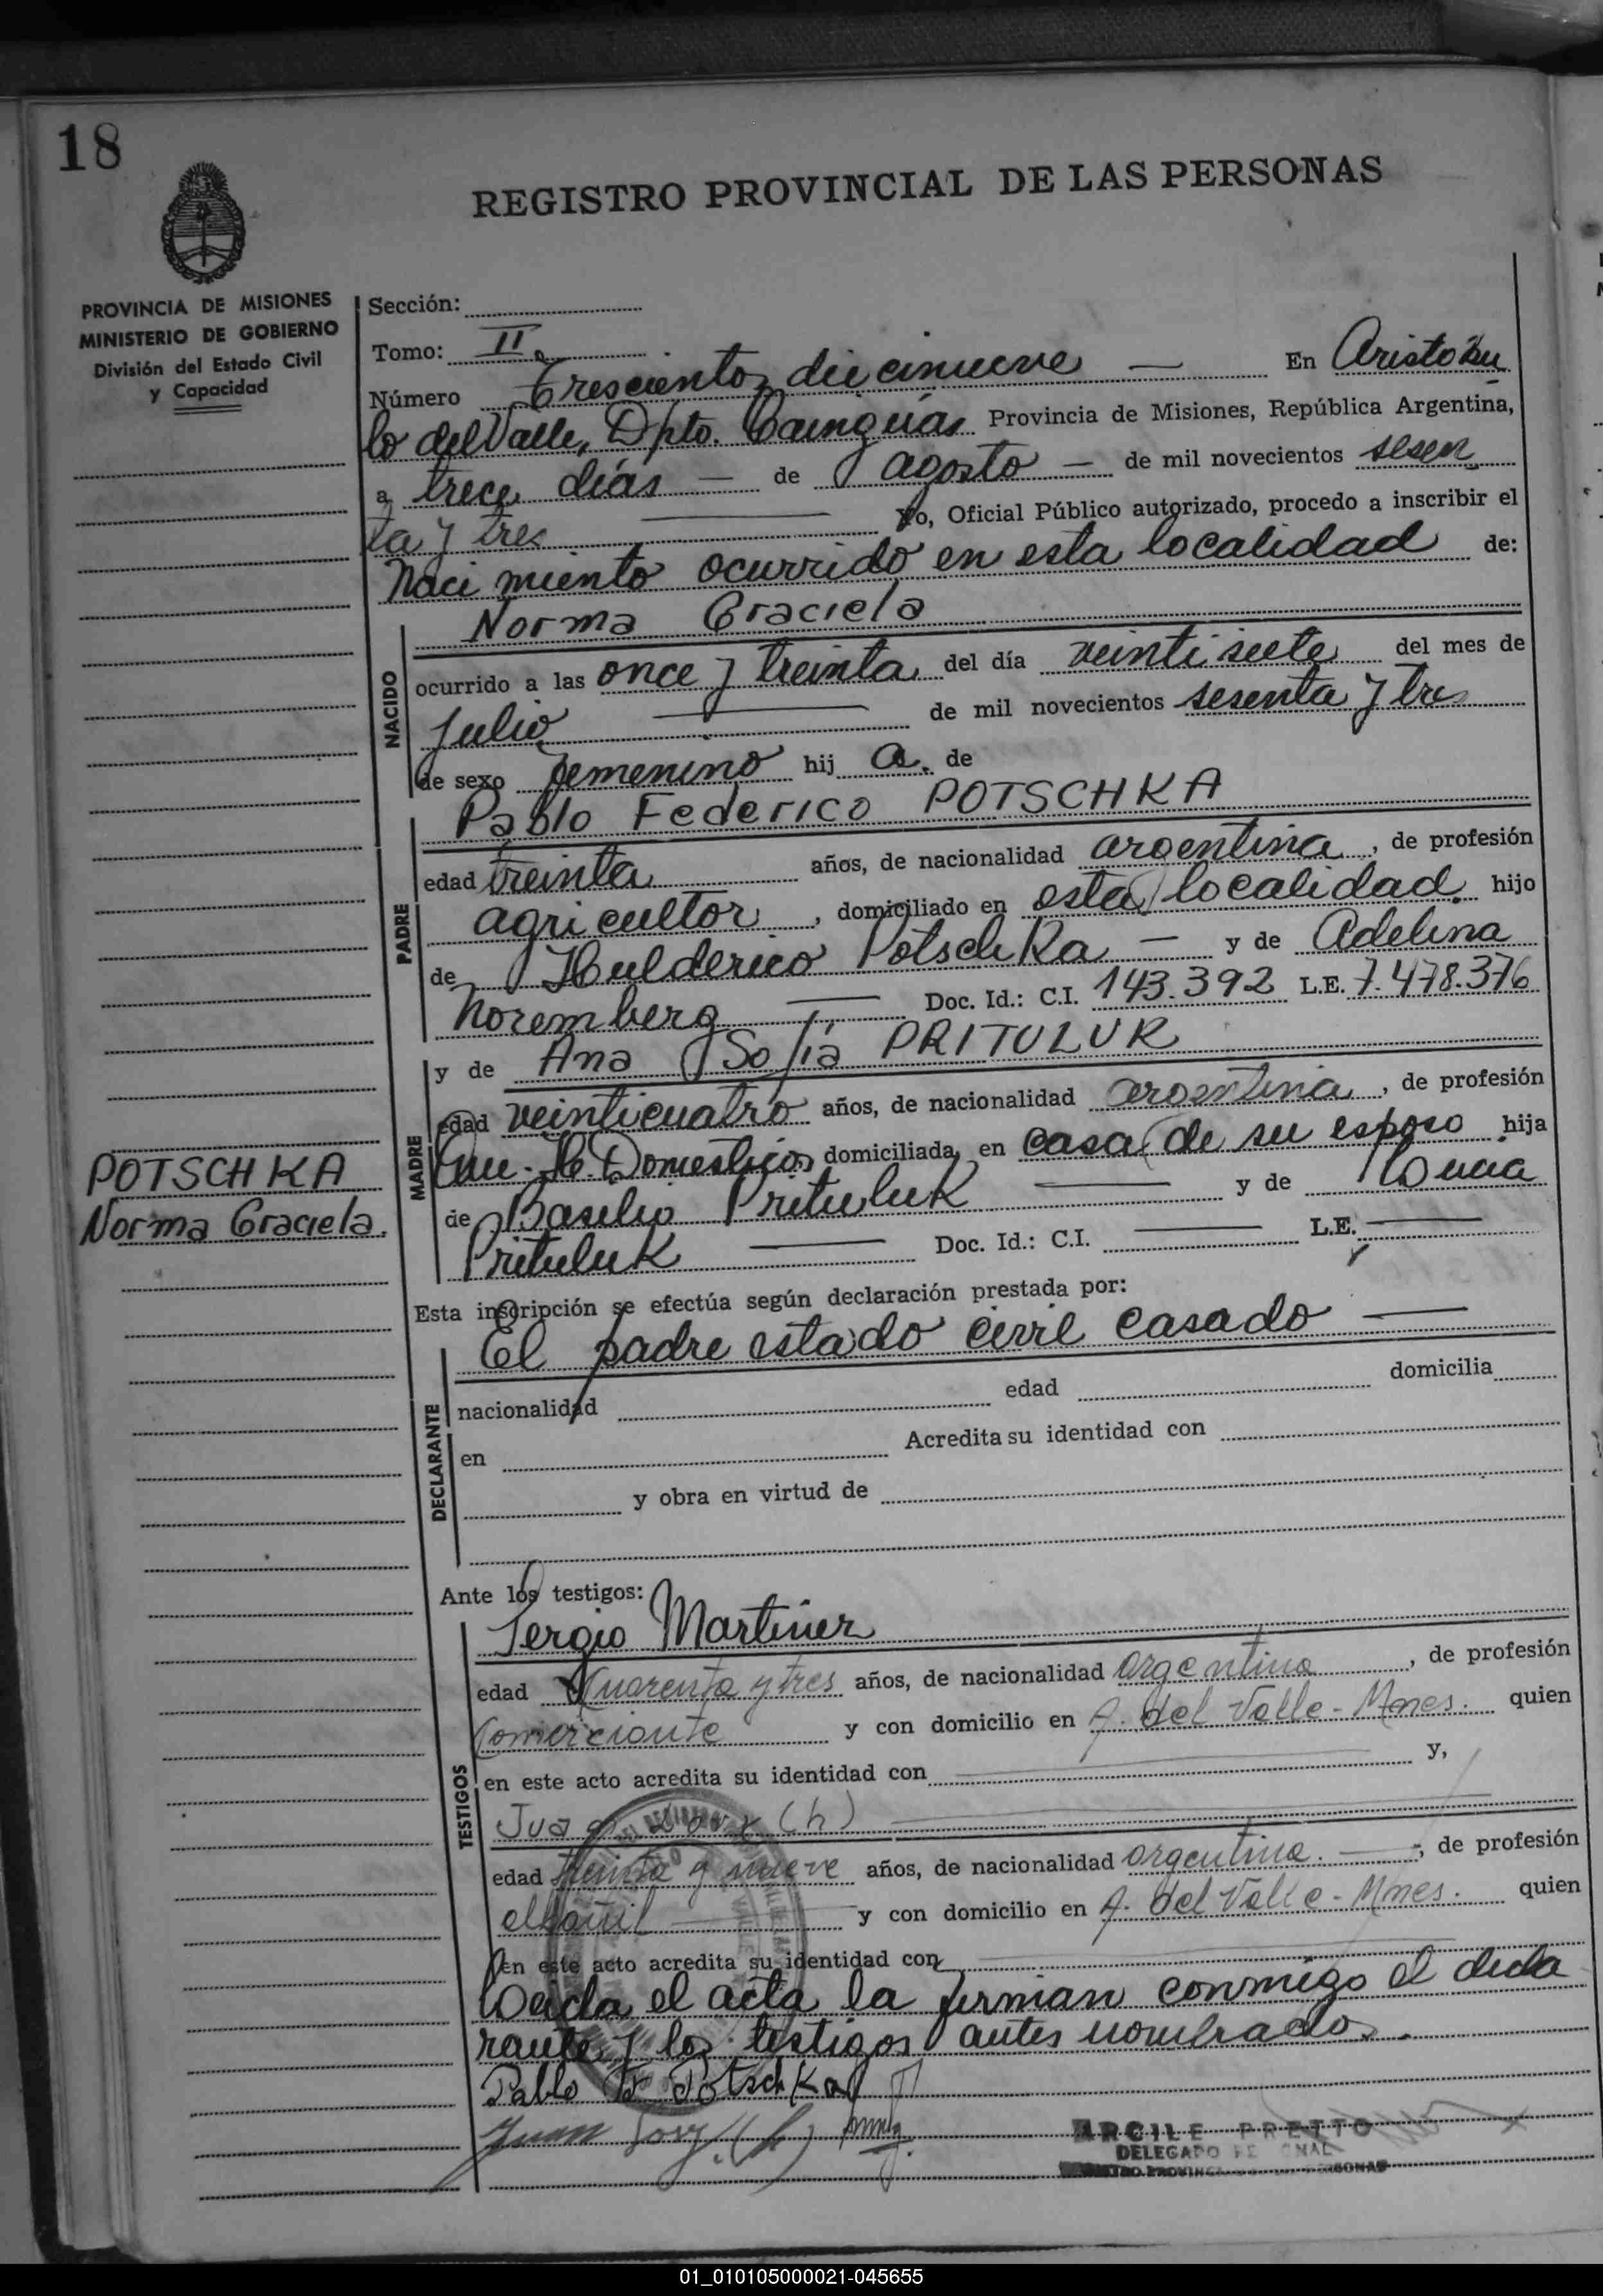 18
REGISTRO PROVINCIAL DE LAS PERSONAS
PROVINCIA DE MISIONES
MINISTERIO DE GOBIERNO
División del Estado Civil
y Capacidad
Sección:
Tomo: II
Número Trescientos diecinueve — En Aristóbu
lo del Valle, Dpto. Cainguás Provincia de Misiones, República Argentina,
a trece días — de agosto — de mil novecientos sesen
ta y tres — Yo, Oficial Público autorizado, procedo a inscribir el
Nacimiento ocurrido en esta localidad de:
NACIDO
Norma Graciela
ocurrido a las once y treinta del día veintisiete del mes de
Julio — de mil novecientos sesenta y tres
de sexo femenino hij a. de
PADRE
Pablo Federico POTSCHKA
edad treinta años, de nacionalidad argentina, de profesión
agricultor, domiciliado en esta localidad. hijo
de Hulderico Potschka — y de Adelina
Noremberg — Doc. Id.: C.I. 143.392 L.E. 7.478.376
MADRE
y de Ana Sofía PRITULUK
edad veinticuatro años, de nacionalidad argentina, de profesión
Qu. H. Domesticos domiciliada en casa de su esposo hija
de Basilio Prituluk — y de
Prituluk — Doc. Id.: C.I. — L.E. —
POTSCHKA
Norma Graciela.
Esta inscripción se efectúa según declaración prestada por:
DECLARANTE
El padre estado civil casado —
nacionalidad edad domicilia
en Acredita su identidad con
y obra en virtud de
Ante los testigos:
TESTIGOS
Sergio Martinez
edad Cuarenta y tres años, de nacionalidad argentina, de profesión
Comerciante y con domicilio en A. del Valle - Mnes. quien
en este acto acredita su identidad con — y,
Juan (h) —
edad treinta y nueve años, de nacionalidad argentina. —, de profesión
albañil — y con domicilio en A. del Valle - Mnes. quien
en este acto acredita su identidad con —
Leida el acta la firman conmigo el decla
rante y los testigos antes nombrados.
Pablo F. Potschka
Juan (h)
ARCILE PRETTO
DELEGADO
01_010105000021-045655